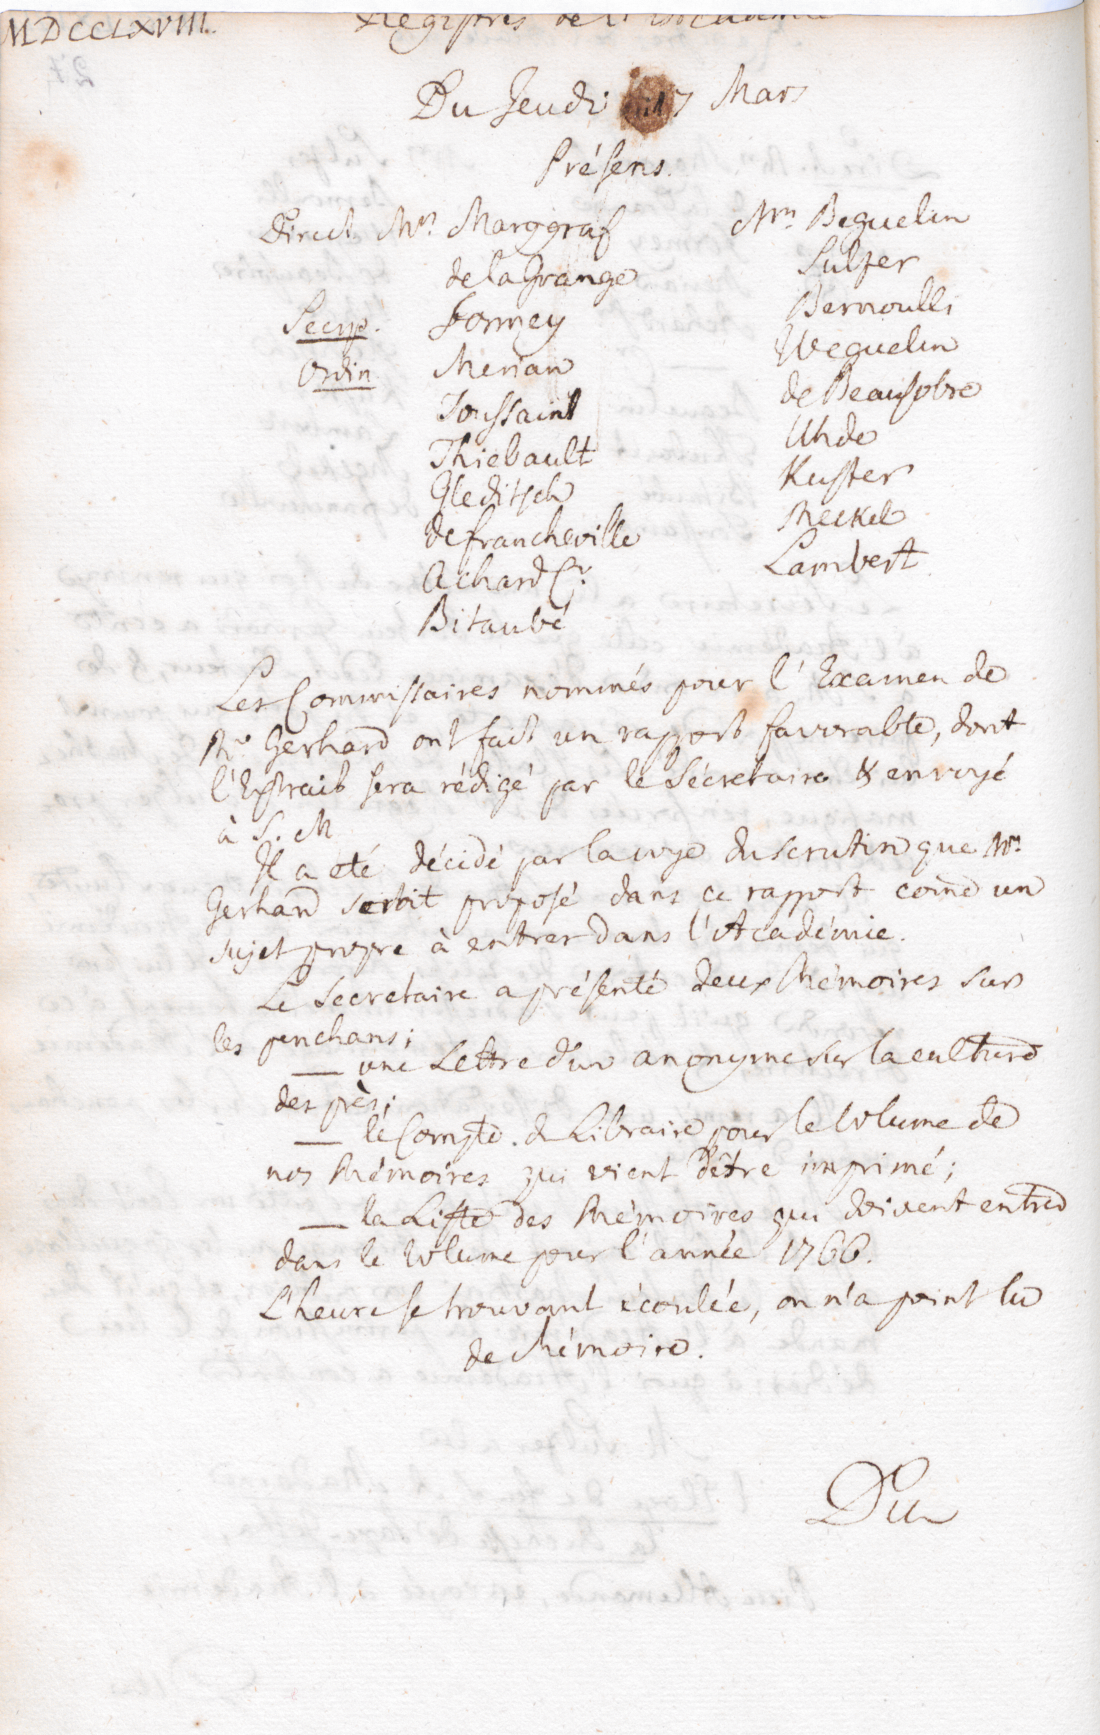 MDCCLXVIII. Registres de l'Academie
Du Jeudi 17 Mars
Présens.
Direct. Mrs. Marggraf
de la Grange
Secrp. Formey
Ordin Merian
Toussaint
Thiebault
Gleditsch
de francheville
Achard Cr.
Bitaubé
Mrs Beguelin
Sulzer
Bernoulli
Weguelin
de Beausobre
Uhde
Kuster
Meckel
Lambert
Les Commissaires nommés pour l'Examen de
Mr Gerhard ont fait un rapport favorable, dont
l'Extrait sera rédigé par le Sécretaire & envoyé
à S. M
Il a eté décidé par la voye du scrutin que Mr.
Gerhard seroit proposé dans ce rapport come un
sujet propre à entrer dans l'Académie.
Le Secretaire a présenté deux Mémoires sur
les penchans;
— une Lettre d'un anonyme sur la culture
des près;
— le Compte de Libraire pour le Volume de
nos Mémoires qui vient d'être imprimé;
— la Liste des Mémoires qui doivent entrer
dans le Volume pour l'année 1766.
L'heure se trouvant écoulée, on n'a point lu
de Mémoire.
Du